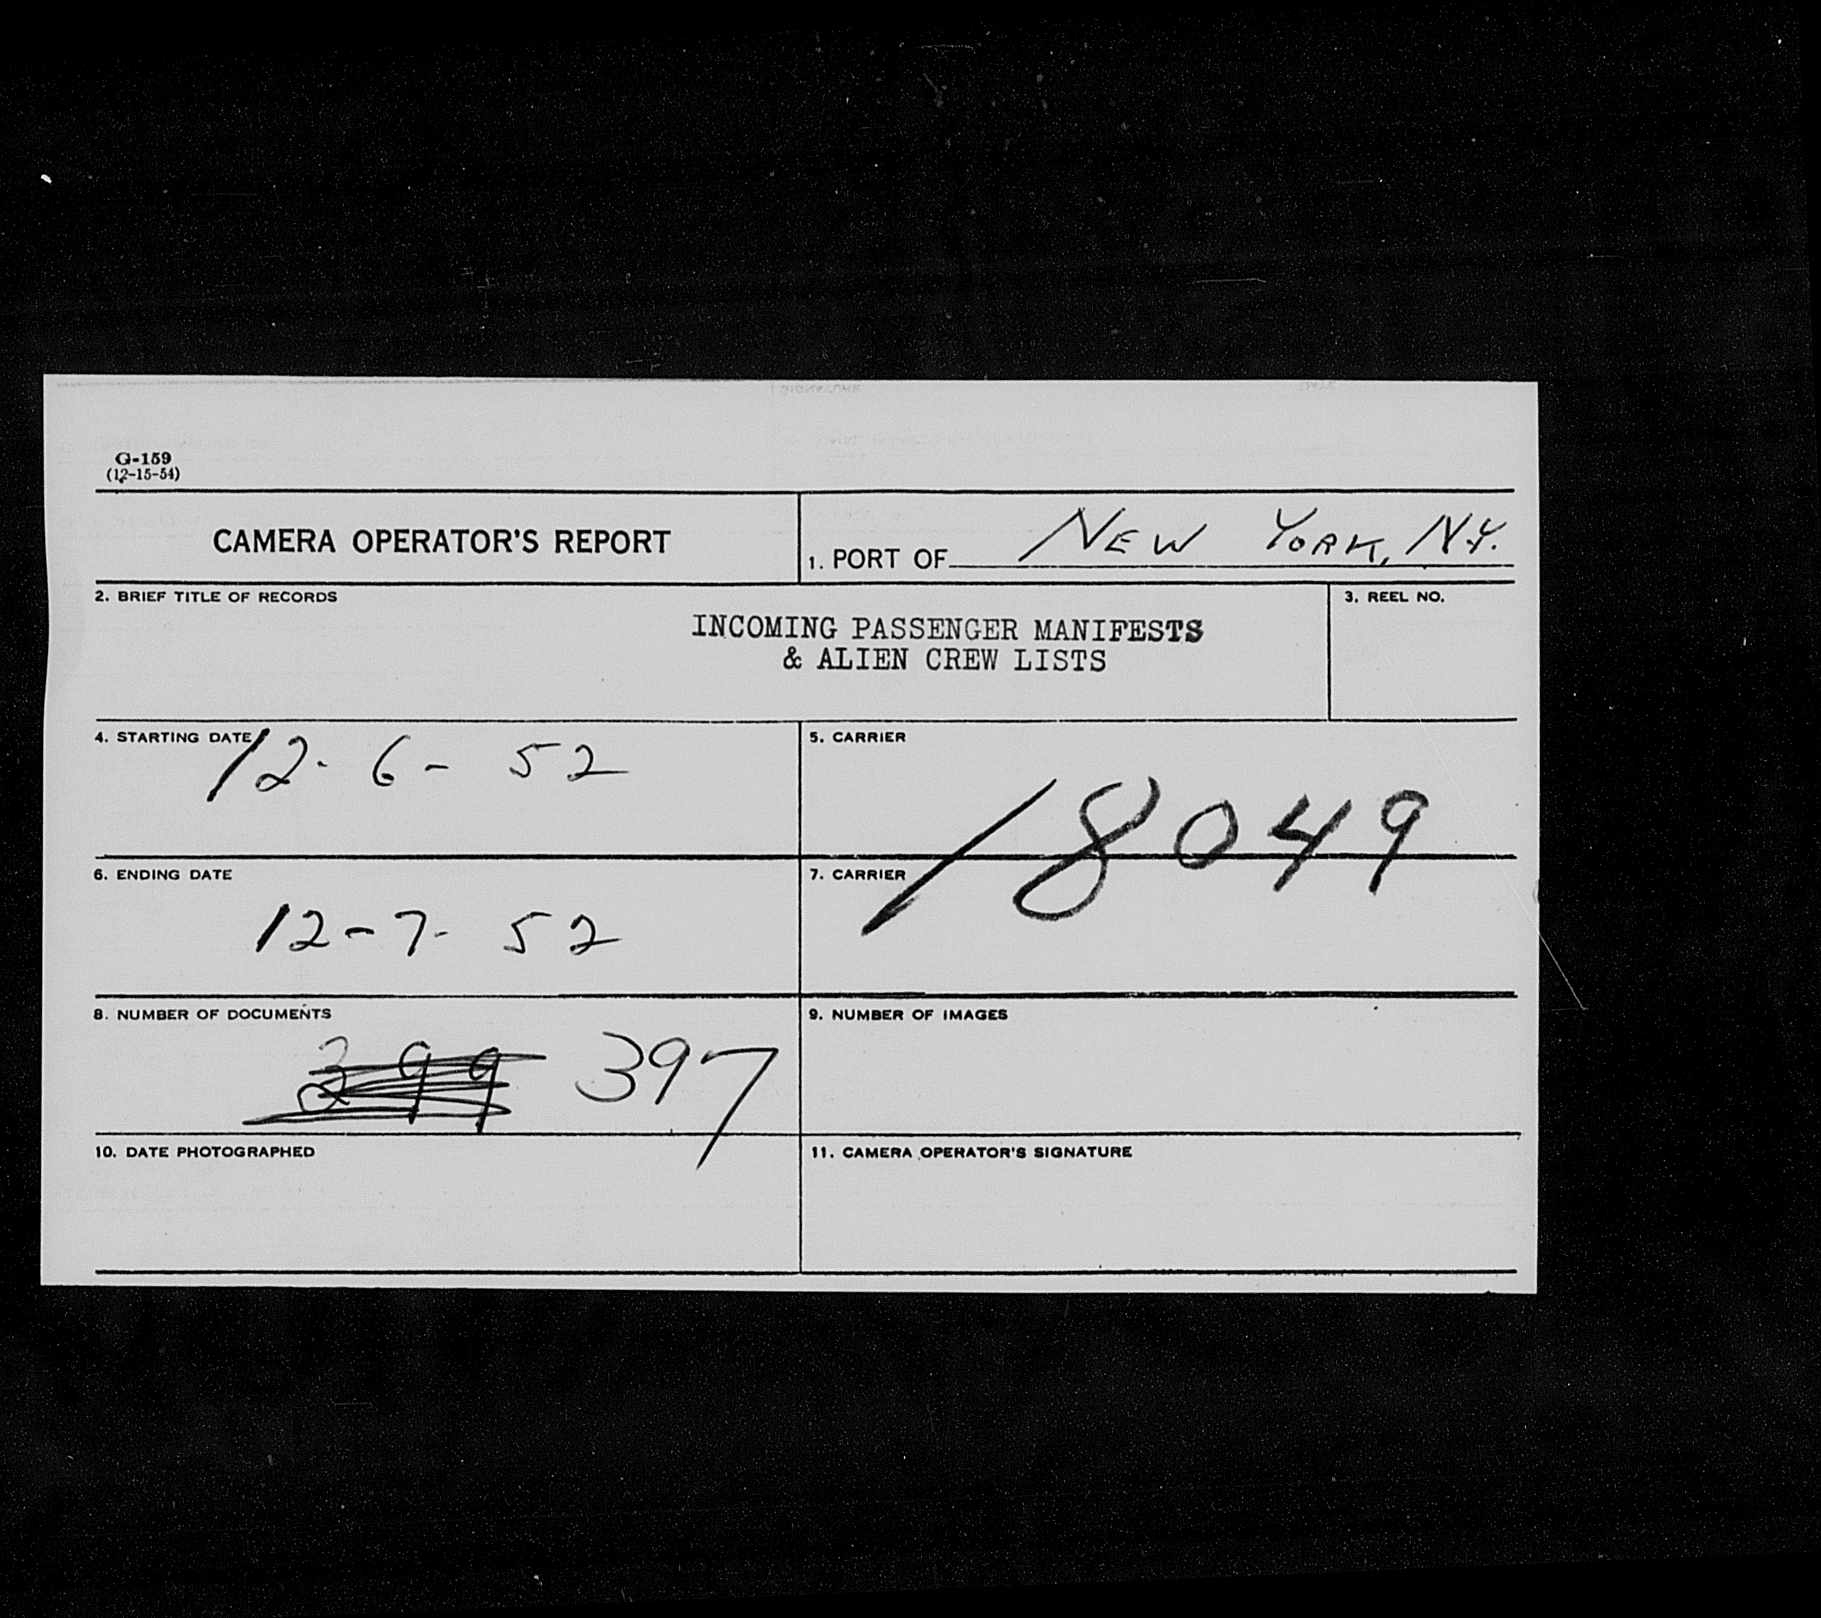 G-159
(12-15-54)
CAMERA OPERATOR'S REPORT
1. PORT OF NEW YORK, N.Y.
2. BRIEF TITLE OF RECORDS
INCOMING PASSENGER MANIFESTS
& ALIEN CREW LISTS
3. REEL NO.
4. STARTING DATE
12-6-52
5. CARRIER
18049
6. ENDING DATE
12-7-52
7. CARRIER
8. NUMBER OF DOCUMENTS
397
9. NUMBER OF IMAGES
10. DATE PHOTOGRAPHED
11. CAMERA OPERATOR'S SIGNATURE